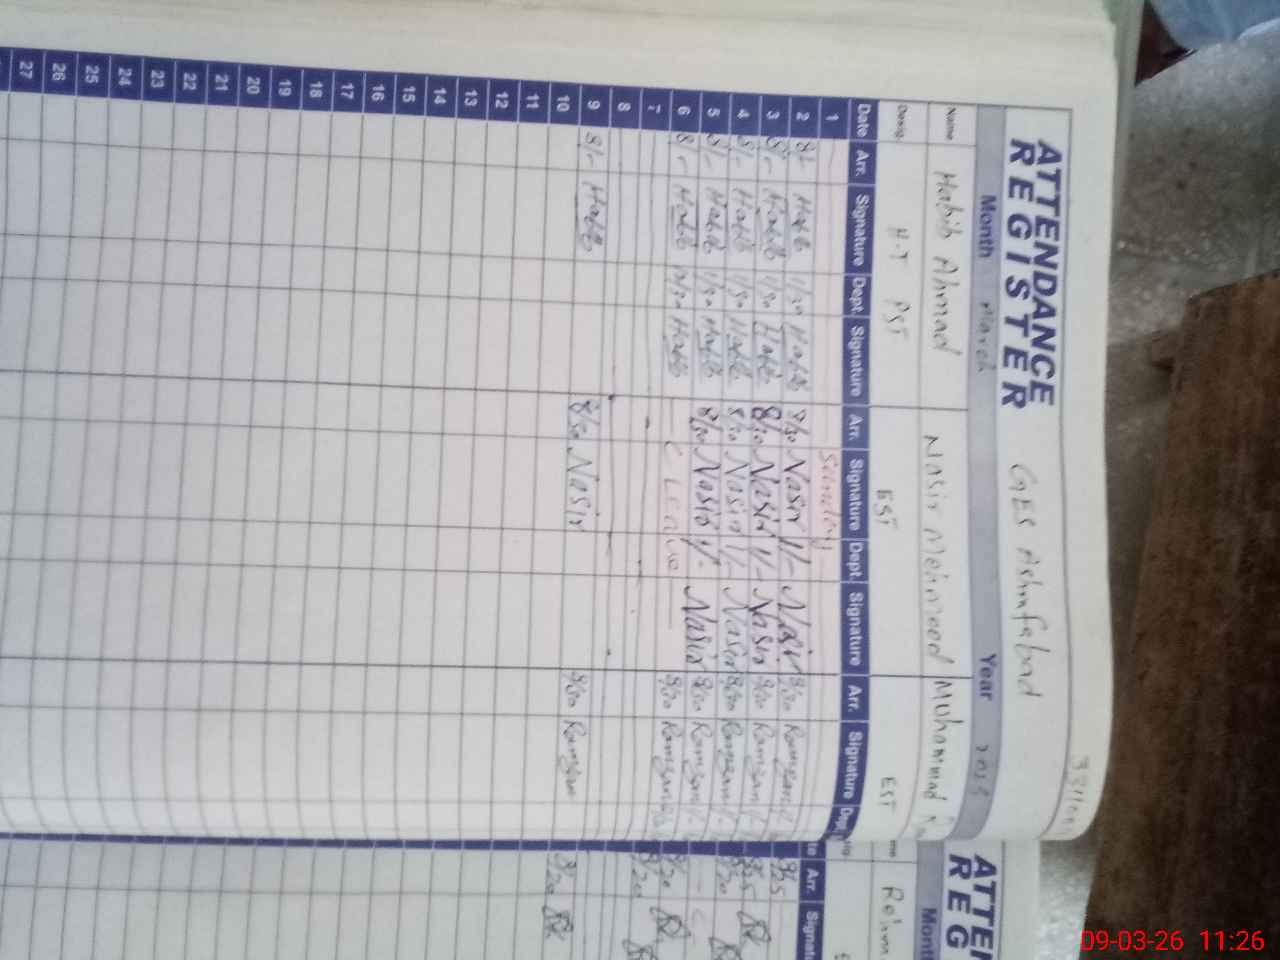 ATTENDANCE
REGISTER
GES Ashrafabad
Month March Year
Name Habib Ahmad Nasir Mehmood Muhammad
Desig. H-T PST EST EST
Date Arr. Signature Dept. Signature Arr. Signature Dept. Signature Arr. Signature Dept.
1 Sunday
2 8/- Habib 1/30 Habib 8/30 Nasir 1/- Nasir 8/30 Ramzan
3 8/- Habib 1/30 Habib 8/30 Nasir 1/- Nasir 8/30 Ramzan
4 8/- Habib 1/30 Habib 8/30 Nasir 1/- Nasir 8/30 Ramzan
5 8/- Habib 1/30 Habib 8/30 Nasir 1/- Nasir 8/30 Ramzan
6 8/- Habib 1/30 Habib C Leave 8/30 Ramzan
7
8
9 8/- Habib 8/30 Nasir 8/30 Ramzan
10
11
12
13
14
15
16
17
18
19
20
21
22
23
24
25
26
27
ATTEN
REG
Month
Arr. Signat
8/25
8/25
8/20
8/20
8/20
8/20
09-03-26 11:26